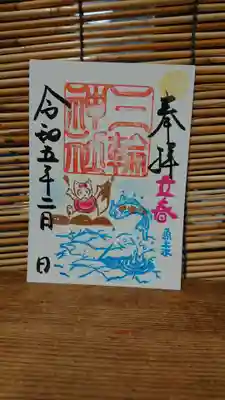 奉拝
立春
三輪
神社
令和五年二月 日